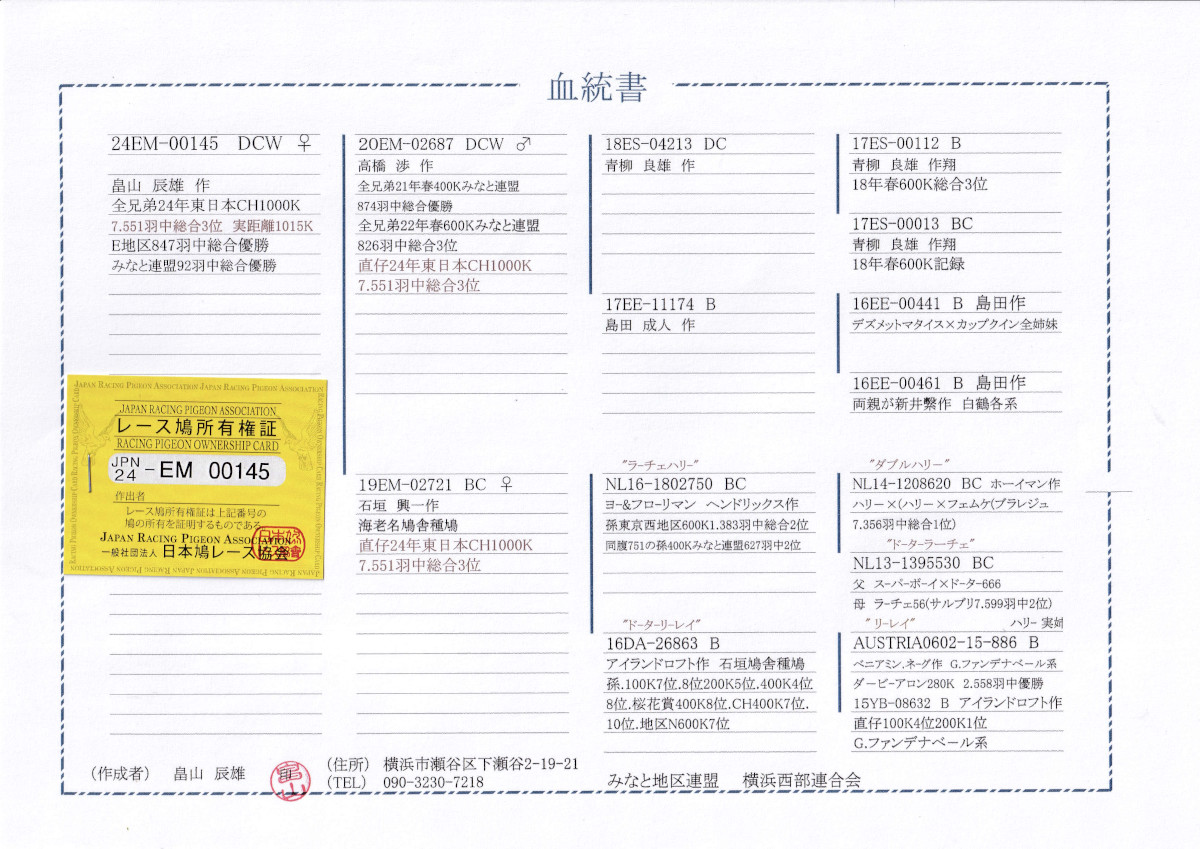 血統書
24EM-00145 DCW ♀
畠山 辰雄 作
全兄弟24年東日本CH1000K
7.551羽中総合3位 実距離1015K
E地区847羽中総合優勝
みなと連盟92羽中総合優勝
JAPAN RACING PIGEON ASSOCIATION JAPAN RACING PIGEON ASSOCIATION
JAPAN RACING PIGEON ASSOCIATION
レース鳩所有権証
RACING PIGEON OWNERSHIP CARD
JPN
24 -EM 00145
作出者
レース鳩所有権証は上記番号の
鳩の所有を証明するものである。
JAPAN RACING PIGEON ASSOCIATION
一般社団法人 日本鳩レース協会
20EM-02687 DCW ♂
高橋 渉 作
全兄弟21年春400Kみなと連盟
874羽中総合優勝
全兄弟22年春600Kみなと連盟
826羽中総合3位
直仔24年東日本CH1000K
7.551羽中総合3位
19EM-02721 BC ♀
石垣 興一作
海老名鳩舎種鳩
直仔24年東日本CH1000K
7.551羽中総合3位
18ES-04213 DC
青柳 良雄 作
17EE-11174 B
島田 成人 作
"ラーチェハリー"
NL16-1802750 BC
ヨー&フローリマン ヘンドリックス作
孫東京西地区600K1.383羽中総合2位
同腹751の孫400Kみなと連盟627羽中2位
"ドーターリーレイ"
16DA-26863 B
アイランドロフト作 石垣鳩舎種鳩
孫.100K7位.8位200K5位.400K4位
8位.桜花賞400K8位.CH400K7位.
10位.地区N600K7位
17ES-00112 B
青柳 良雄 作翔
18年春600K総合3位
17ES-00013 BC
青柳 良雄 作翔
18年春600K記録
16EE-00441 B 島田作
デズメットマタイス×カップクイン全姉妹
16EE-00461 B 島田作
両親が新井繫作 白鶴各系
"ダブルハリー"
NL14-1208620 BC ホーイマン作
ハリー×(ハリー×フェムケ(ブラレジュ
7.356羽中総合1位)
"ドーターラーチェ"
NL13-1395530 BC
父 スーパーボーイ×ドーター666
母 ラーチェ56(サルブリ7.599羽中2位)
"リーレイ" ハリー 実姉
AUSTRIA0602-15-886 B
ベニアミン.ネーグ作 G.ファンデナベール系
ダービーアロン280K 2.558羽中優勝
15YB-08632 B アイランドロフト作
直仔100K4位200K1位
G.ファンデナベール系
(作成者) 畠山 辰雄
畠山
(住所) 横浜市瀬谷区下瀬谷2-19-21
(TEL) 090-3230-7218
みなと地区連盟 横浜西部連合会